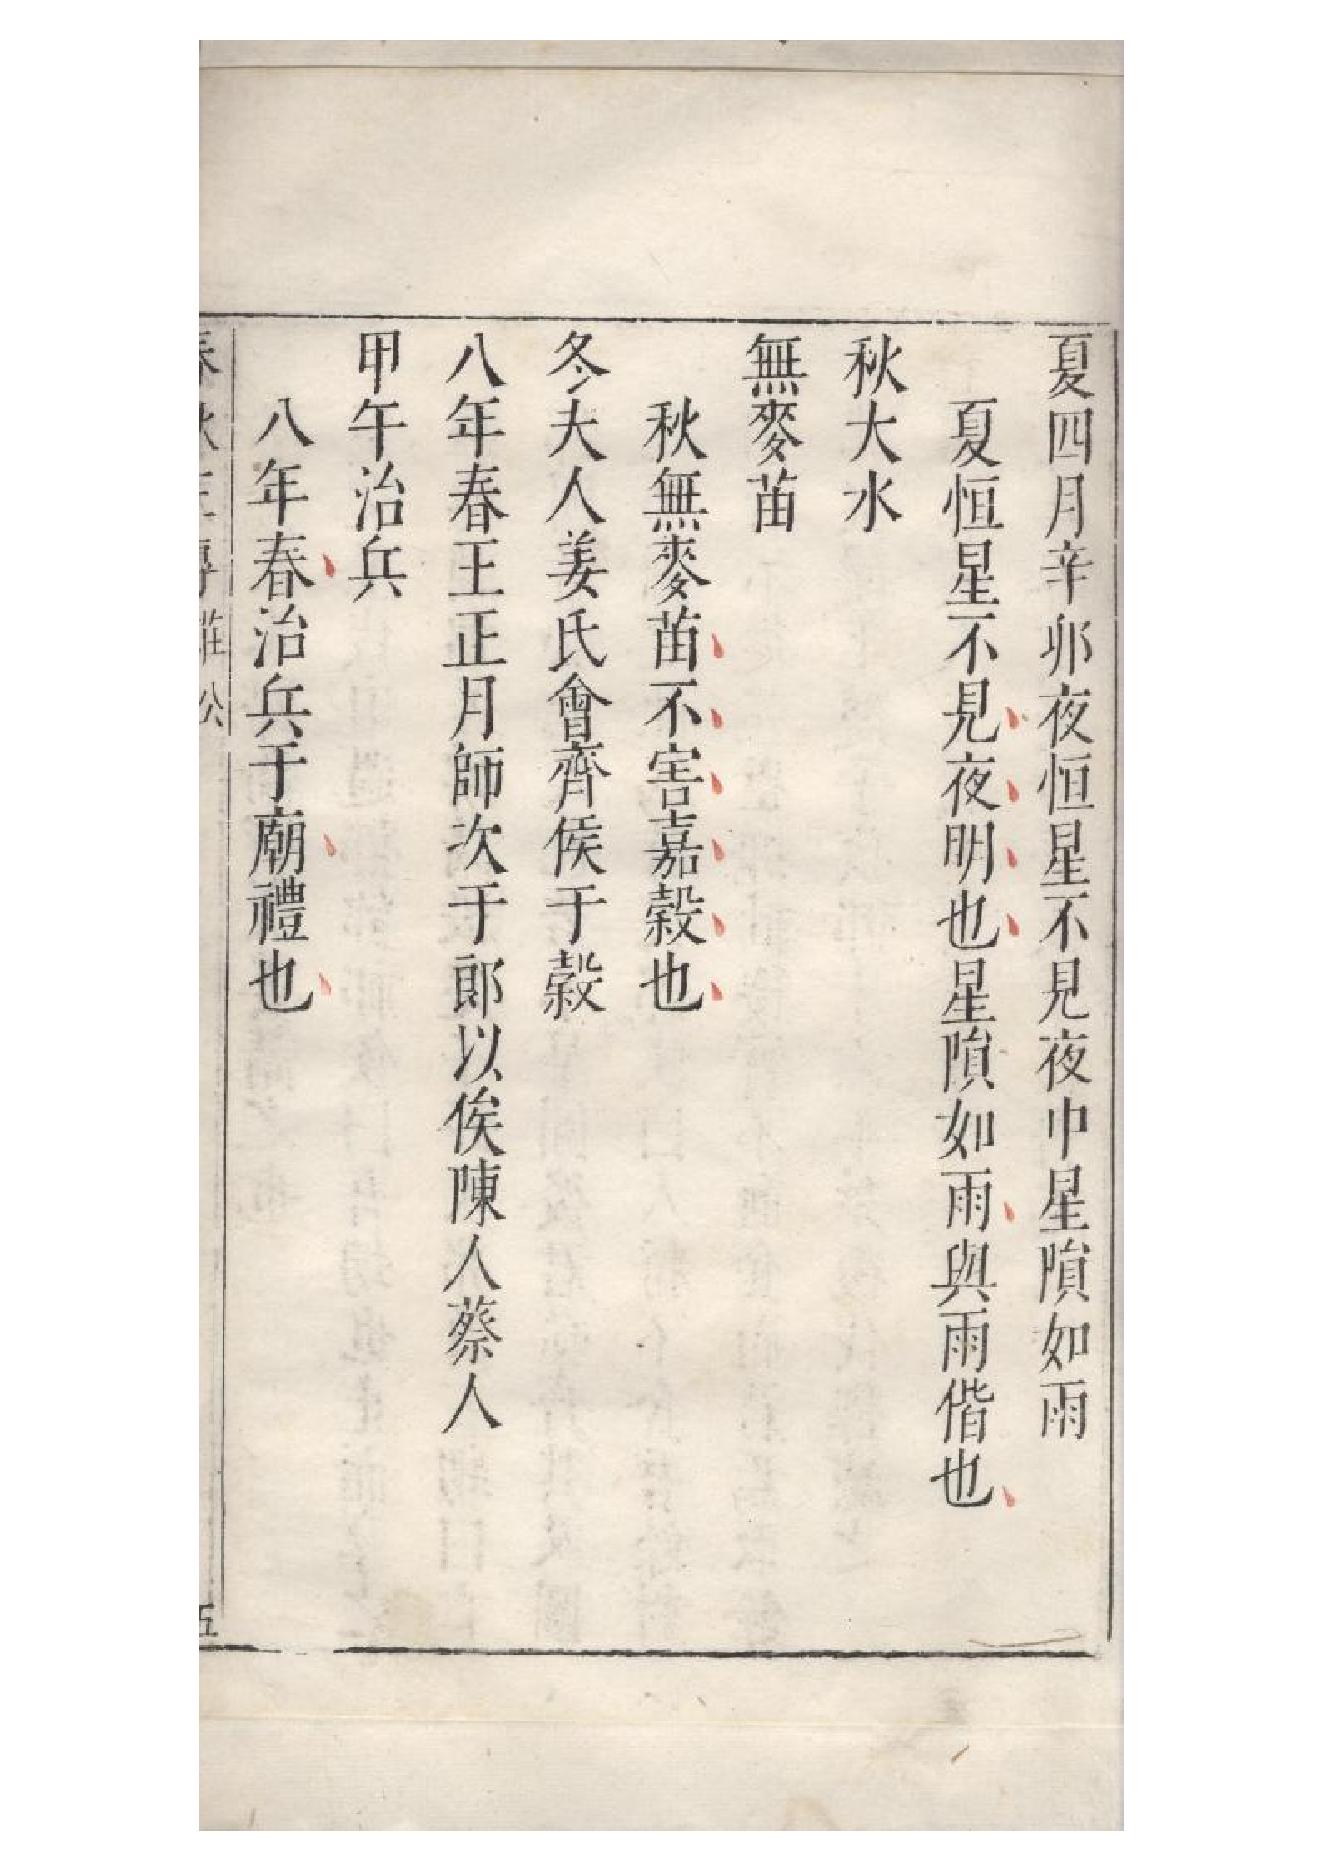 夏四月辛卯夜恒星不見夜中星隕如雨
夏恒星不見夜明也星隕如雨與雨偕也
秋大水
無麥苗
秋無麥苗不害嘉穀也
冬夫人姜氏會齊侯于穀
八年春王正月師次于郎以俟陳人蔡人
甲午治兵
八年春治兵于廟禮也
春秋左傳 莊公 五